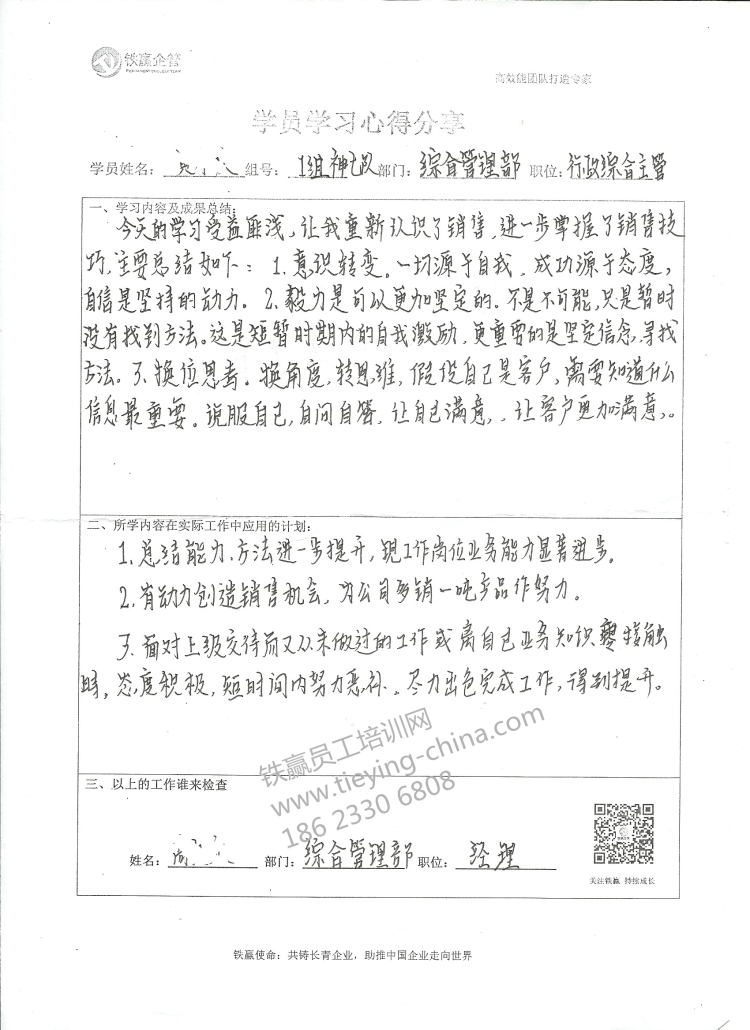 铁赢企管
高效能团队打造专家
学员学习心得分享
学员姓名： 组号：1组神七队 部门：综合管理部 职位：行政综合主管
一、学习内容及成果总结：
今天的学习受益匪浅，让我重新认识了销售，进一步掌握了销售技
巧，主要总结如下：1.意识转变。一切源于自我，成功源于态度，
自信是坚持的动力。2.毅力是可以更加坚定的。不是不可能，只是暂时
没有找到方法。这是短暂时期内的自我激励，更重要的是坚定信念，寻找
方法。3.换位思考。换角度，转思维，假设自己是客户，需要知道什么
信息最重要。说服自己，自问自答，让自己满意，让客户更加满意。
二、所学内容在实际工作中应用的计划：
1.总结能力、方法进一步提升，现工作岗位业务能力显著进步。
2.有动力创造销售机会，为公司多销一吨产品作努力。
3.面对上级交待而又从未做过的工作或离自己业务知识零接触
时，态度积极，短时间内努力恶补。尽力出色完成工作，得到提升。
铁赢员工培训网
www.tieying-china.com
186 2330 6808
三、以上的工作谁来检查
姓名： 部门：综合管理部 职位：经理
关注铁赢 持续成长
铁赢使命：共铸长青企业，助推中国企业走向世界